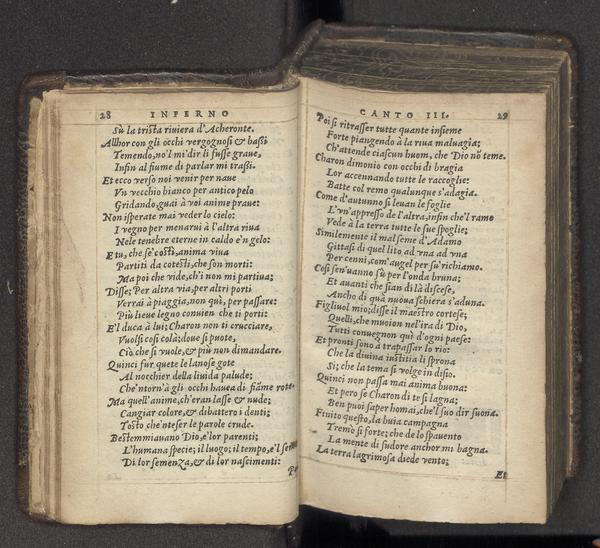 28 INFERNO
Sù la trista riviera d'Acheronte.
Allhor con gli occhi vergognosi & bassi
Temendo, no'l mi'dir li fusse graue,
Infin al fiume di parlar mi trassi.
Et ecco verso noi venir per naue
Vn vecchio bianco per antico pelo
Gridando, guai à voi anime praue:
Non isperate mai veder lo cielo:
I vegno per menarui à l'altra riua
Nele tenebre eterne in caldo e'n gelo:
E tu, che se' costì, anima viua
Partiti da cotesti, che son morti:
Ma poi che vide, ch'i non mi partiua;
Disse; Per altra via, per altri porti
Verrai à piaggia, non quì, per passare:
Più lieue legno conuien che ti porti:
E'l duca à lui; Charon non ti crucciare,
Vuolsi così colà; doue si puote,
Ciò che si vuole, & più non dimandare.
Quinci fur quete le lanose gote
Al nocchier della liuida palude;
Che'ntorn'à gli occhi hauea di fiãme rote.
Ma quell'anime, ch'eran lasse & nude;
Cangiar colore, & dibattero i denti;
Tosto che'nteser le parole crude.
Bestemmiauano Dio, e'lor parenti;
L'humana specie; il luogo; il tempo, e'l seme
Di lor semenza, & di lor nascimenti:
CANTO III. 29
Poi si ritrasser tutte quante insieme
Forte piangendo à la riua maluagia;
Ch'attende ciascun huom, che Dio nõ teme.
Charon dimonio con occhi di bragia
Lor accennando tutte le raccoglie:
Batte col remo qualunque s'adagia.
Come d'autunno si leuan le foglie
L'vn'appresso de l'altra, infin che'l ramo
Vede à la terra tutte le sue spoglie;
Similemente il mal seme d'Adamo
Gittasi di quel lito ad vna ad vna
Per cenni, com'augel per su'richiamo.
Così sen'uanno sù per l'onda bruna;
Et auanti che sian di là discese,
Ancho di quà nuoua schiera s'aduna.
Figliuol mio; disse il maestro cortese;
Quelli, che muoion nel'ira di Dio,
Tutti conuegnon quì d'ogni paese:
Et pronti sono à trapassar lo rio:
Che la diuina iustitia li sprona
Sì; che la tema si volge in disio.
Quinci non passa mai anima buona:
Et però se Charon di te si lagna;
Ben puoi saper homai, che'l suo dir suona.
Finito questo, la buia campagna
Tremò sì forte; che de lo spauento
La mente di sudore anchor mi bagna.
La terra lagrimosa diede vento;
Et